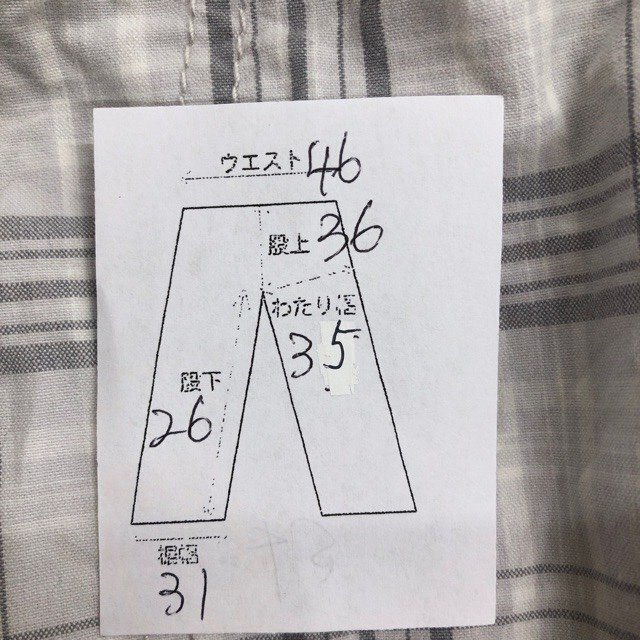 ウエスト 46
股上 36
わたり幅
35
股下
26
裾幅
31